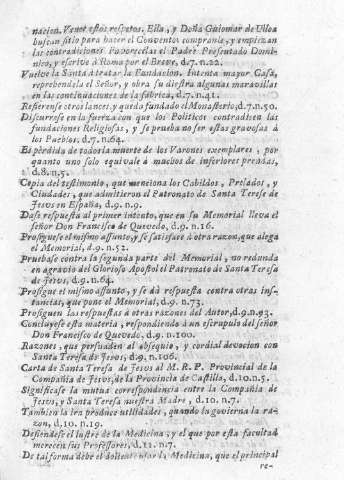 nacion. Vence estos respetos. Ella, y Doña Guiomar de Ulloa
buscan sitio para hacer el Convento: compranle, y empiezan
las contradiciones. Favorecelas el Padre Presentado Domi-
nico, y escrive à Roma por el Breve, d.7.n.22.
Vuelve la Santa à tratar la Fundacion. Intenta mayor Casa,
reprehendela el Señor, y obra su diestra algunas maravillas
en las continuaciones de la fabrica, d.7.n.41.
Refierense otros lances, y queda fundado el Monasterio, d.7.n.50.
Discurrese en la fuerza con que los Politicos contradicen las
fundaciones Religiosas, y se prueba no ser estas gravosas à
los Pueblos, d.7.n.64.
Es pérdida de todo la muerte de los Varones exemplares, por
quanto uno solo equivale à muchos de inferiores prendas,
d.8.n.5.
Copia del testimonio, que menciona los Cabildos, Prelados, y
Ciudades, que admitieron el Patronato de Santa Teresa de
Jesus en España, d.9.n.9.
Dase respuesta al primer intento, que en su Memorial lleva el
señor Don Francisco de Quevedo, d.9.n.16.
Prosiguese el mismo assunto, y se satisface à otra razon, que alega
el Memorial, d.9.n.52.
Pruebase contra la segunda parte del Memorial, no redunda
en agravio del Glorioso Apostol el Patronato de Santa Teresa
de Jesus, d.9.n.64.
Prosigue el mismo assunto, y se dà respuesta contra otras ins-
tancias, que pone el Memorial, d.9.n.73.
Prosiguen las respuestas à otras razones del Autor, d.9.n.93.
Concluyese esta materia, respondiendo à un escrupulo del señor
Don Francisco de Quevedo, d.9.n.100.
Razones, que persuaden al obsequio, y cordial devocion con
Santa Teresa de Jesus, d.9.n.106.
Carta de Santa Teresa de Jesus al M. R. P. Provincial de la
Compañia de Jesus, de la Provincia de Castilla, d.10.n.5.
Significase la mutua correspondencia entre la Compañia de
Jesus, y Santa Teresa nuestra Madre, d.10.n.7.
Tambien la ira produce utilidades, quando la govierna la ra-
zon, d.10.n.19.
Defiendese el lustre de la Medicina; y el que por esta facultad
merecen sus Professores, d.12.n.7.
De tal forma debe el doliente usar la Medicina, que el principal
re-